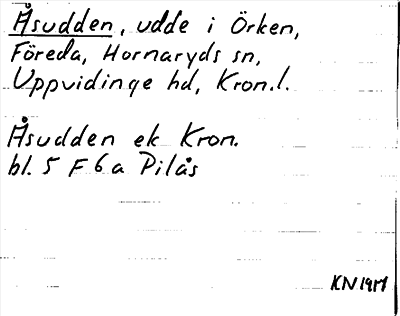 Åsudden, udde i Örken,
Föreda, Hornaryds sn,
Uppvidinge hd, Kron.l.
Åsudden ek Kron.
bl. 5 F 6 a Pilås